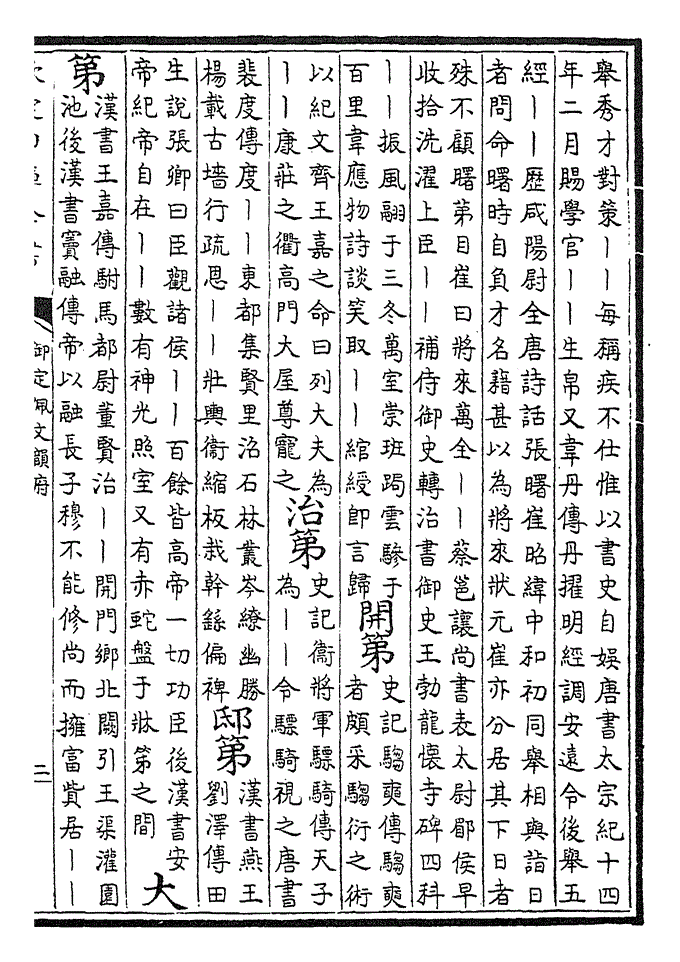 舉秀才對策丨丨每稱疾不仕惟以書史自娛唐書太宗紀十四
年二月賜學官丨丨生帛又韋丹傳丹擢明經調安遠令後舉五
經丨丨歷咸陽尉全唐詩話張曙崔昭緯中和初同舉相與詣日
者問命曙時自負才名藉甚以為將來狀元崔亦分居其下日者
殊不顧曙第目崔曰將來萬全丨丨蔡邕讓尚書表太尉郿侯早
收拾洗濯上臣丨丨補侍御史轉治書御史王勃龍懷寺碑四科
丨丨振風翮于三冬萬室崇班跼雲驂于
百里韋應物詩談笑取丨丨綰綬即言歸
開第
史記騶奭傳騶奭
者頗采騶衍之術
以紀文齊王嘉之命曰列大夫為
丨丨康莊之衢高門大屋尊寵之
治第
史記衞將軍驃騎傳天子
為丨丨令驃騎視之唐書
裴度傳度丨丨東都集賢里沼石林叢岑繚幽勝
楊載古墻行疏恩丨丨壯輿衛縮板栽幹繇偏裨
邸第
漢書燕王
劉澤傳田
生說張卿曰臣觀諸侯丨丨百餘皆高帝一切功臣後漢書安
帝紀帝自在丨丨數有神光照室又有赤蛇盤于牀第之間
大
第
漢書王嘉傳駙馬都尉董賢治丨丨開門鄉北闕引王渠灌園
池後漢書竇融傳帝以融長子穆不能修尚而擁富貲居丨丨
御定佩文韻府
二